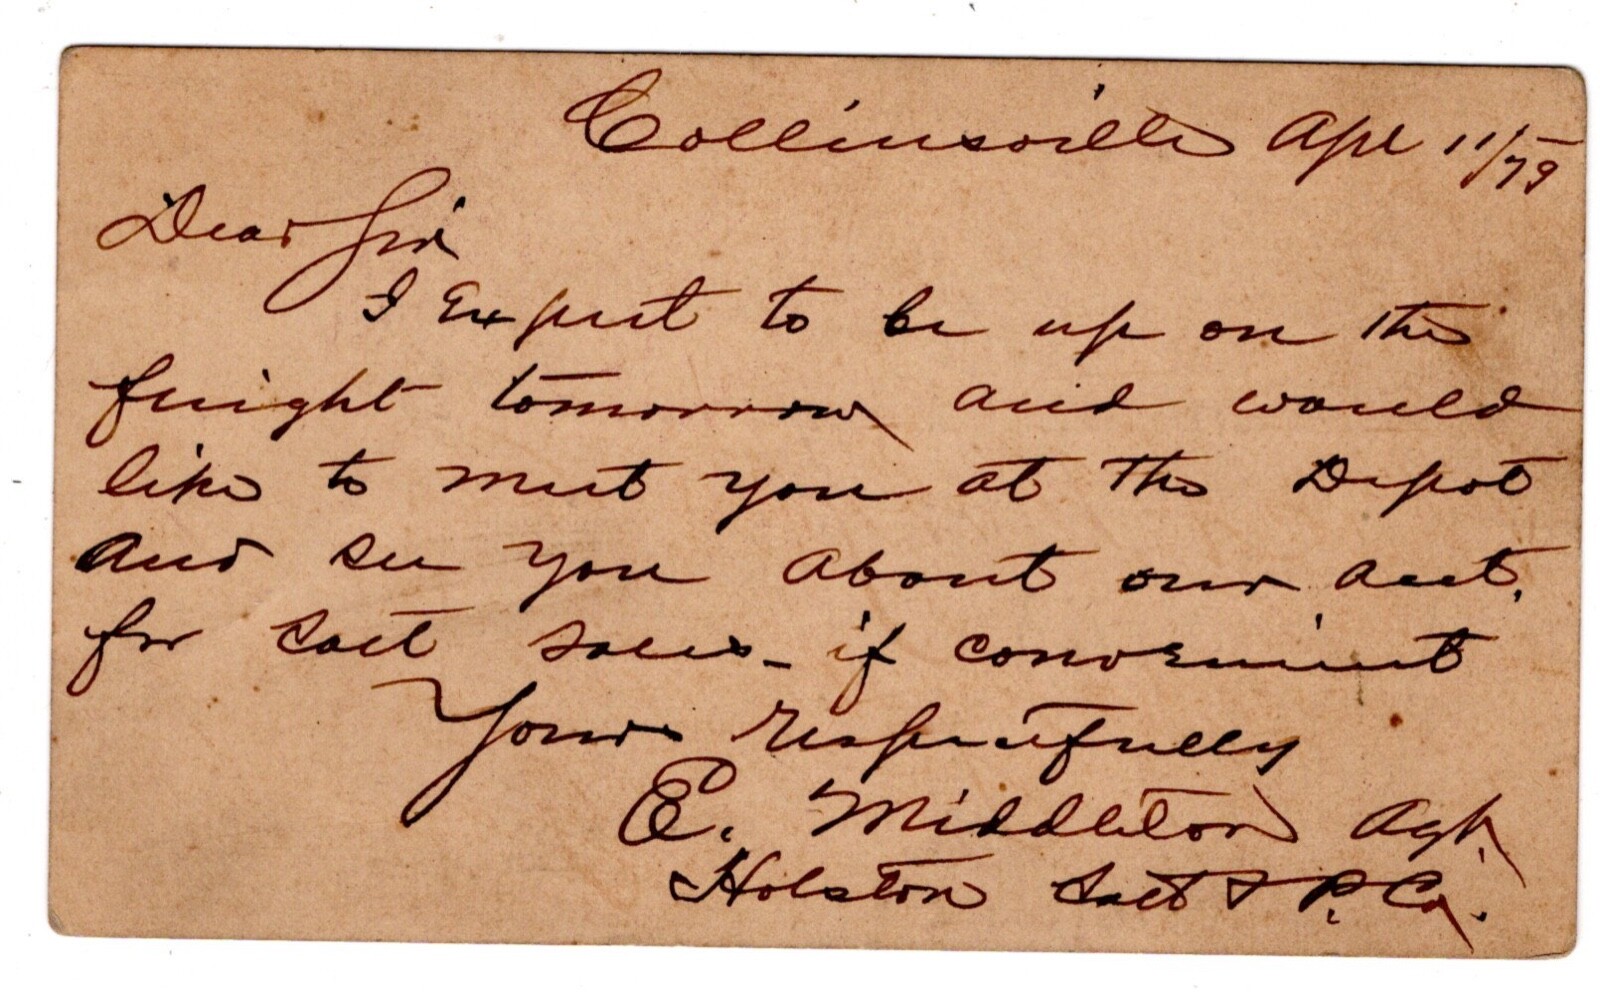 Collinsville Apl 11/79
Dear Sir
I Expect to be up on the
freight tomorrow and would
like to meet you at the Depot
and see you about our acct.
for Salt sales - if convenient
Yours respectfully
E. Middleton Agt.
Holston Salt & P. Co.